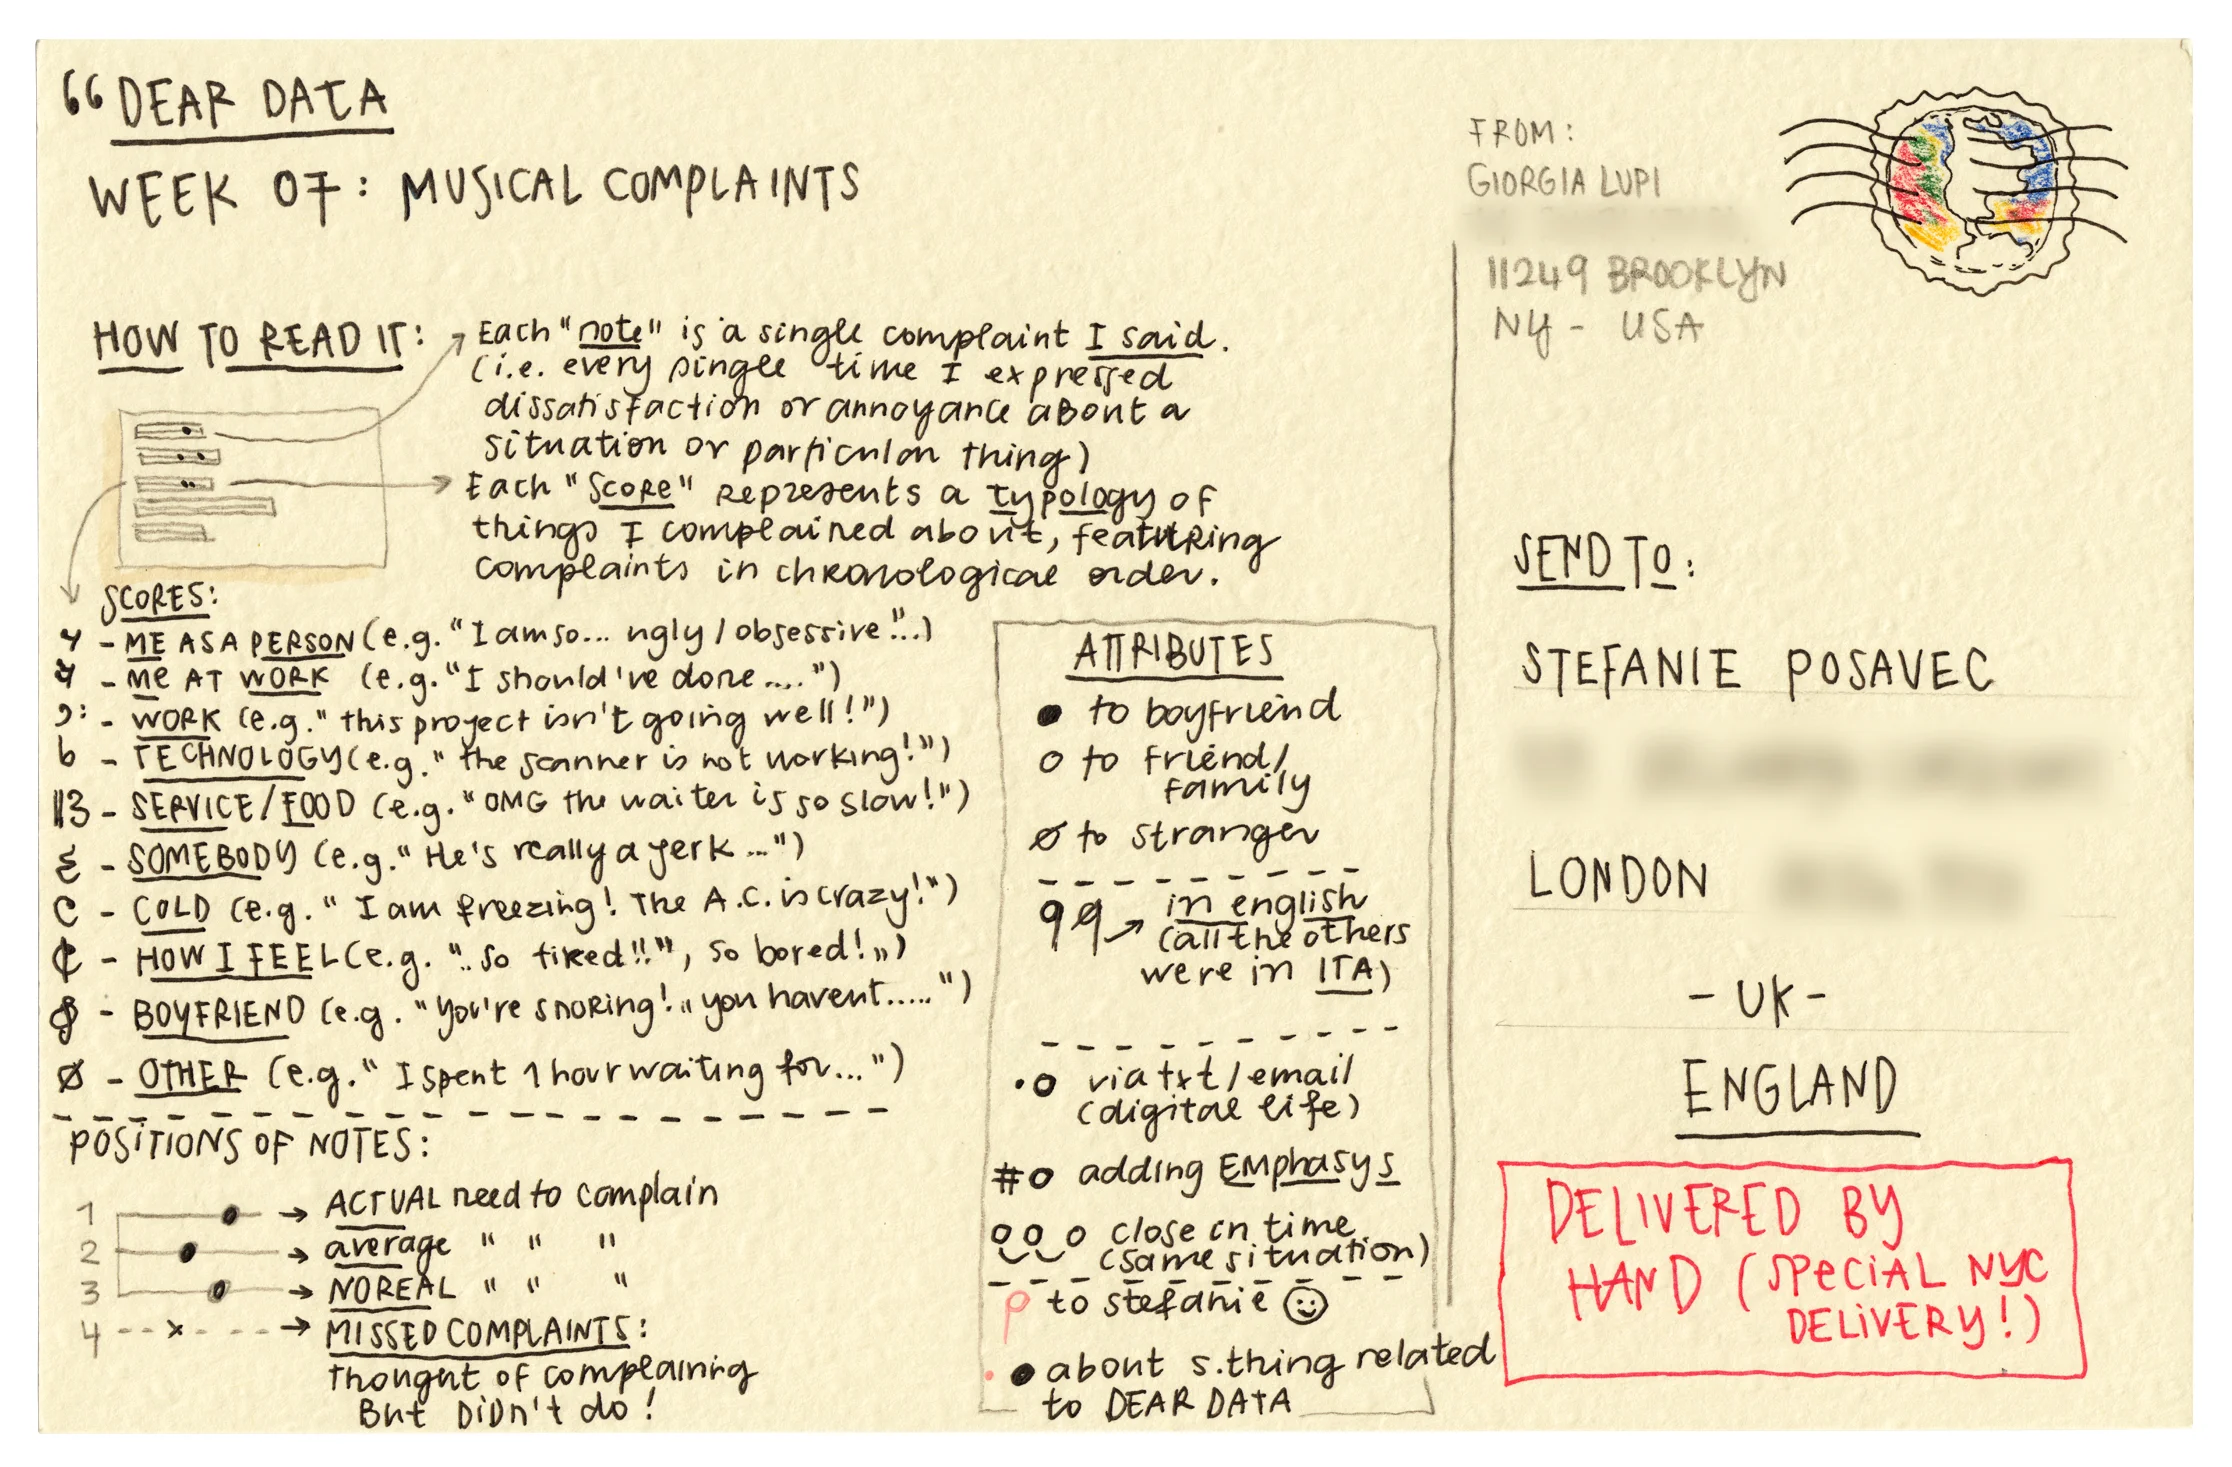 “DEAR DATA
WEEK 07: MUSICAL COMPLAINTS
HOW TO READ IT:
Each "note" is a single complaint I said.
(i.e. every single time I expressed
dissatisfaction or annoyance about a
situation or particular thing)
Each "SCORE" represents a typology of
things I complained about, featuring
complaints in chronological order.
SCORES:
- ME AS A PERSON (e.g. "I am so... ugly / obsessive"...)
- Me AT WORK (e.g. "I should've done....")
- WORK (e.g. "this project isn't going well!")
- TECHNOLOGY (e.g. "the scanner is not working!")
- SERVICE/FOOD (e.g. "OMG the waiter is so slow!")
- SOMEBODY (e.g. "He's really a jerk...")
- COLD (e.g. "I am freezing! The A.C. is crazy!")
- HOW I FEEL (e.g. "..so tired!!", so bored!")
- BOYFRIEND (e.g. "You're snoring!" "you havent.....")
- OTHER (e.g. "I spent 1 hour waiting for...")
POSITIONS OF NOTES:
1 → ACTUAL need to complain
2 → average " " "
3 → NO REAL " " "
4 → MISSED COMPLAINTS:
Thought of complaining
But DiDn't do!
ATTRIBUTES
to boyfriend
to friend/
family
to stranger
in english
(all the others
were in ITA)
via txt/email
(digital life)
#o adding EMphasys
close in time
(same situation)
to stefanie
about s.thing related
to DEAR DATA
FROM:
GIORGIA LUPI
11249 BROOKLYN
NY - USA
SEND TO:
STEFANIE POSAVEC
LONDON
- UK -
ENGLAND
DELIVERED BY
HAND (SPECIAL NYC
DELIVERY!)